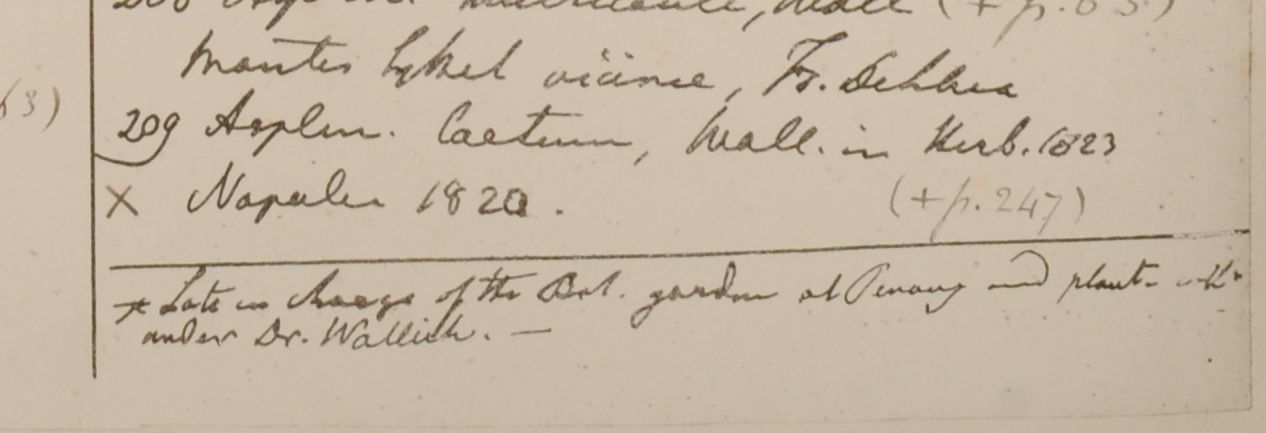 63)
208 Asplen. Wall (+ p. 63)
Montes Sylhet vicinae, Fr. De
209 Asplen. laetum, Wall. in Herb. 1823
× Napalia 1820. (+ p. 247)
* Late in charge of the Bot. garden at Penang and plant-
under Dr. Wallich. —